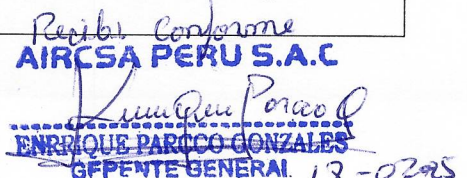 Recibi Conforme
AIRCSA PERU S.A.C
Enrrique Parcco G
ENRRIQUE PARCCO GONZALES
GERENTE GENERAL